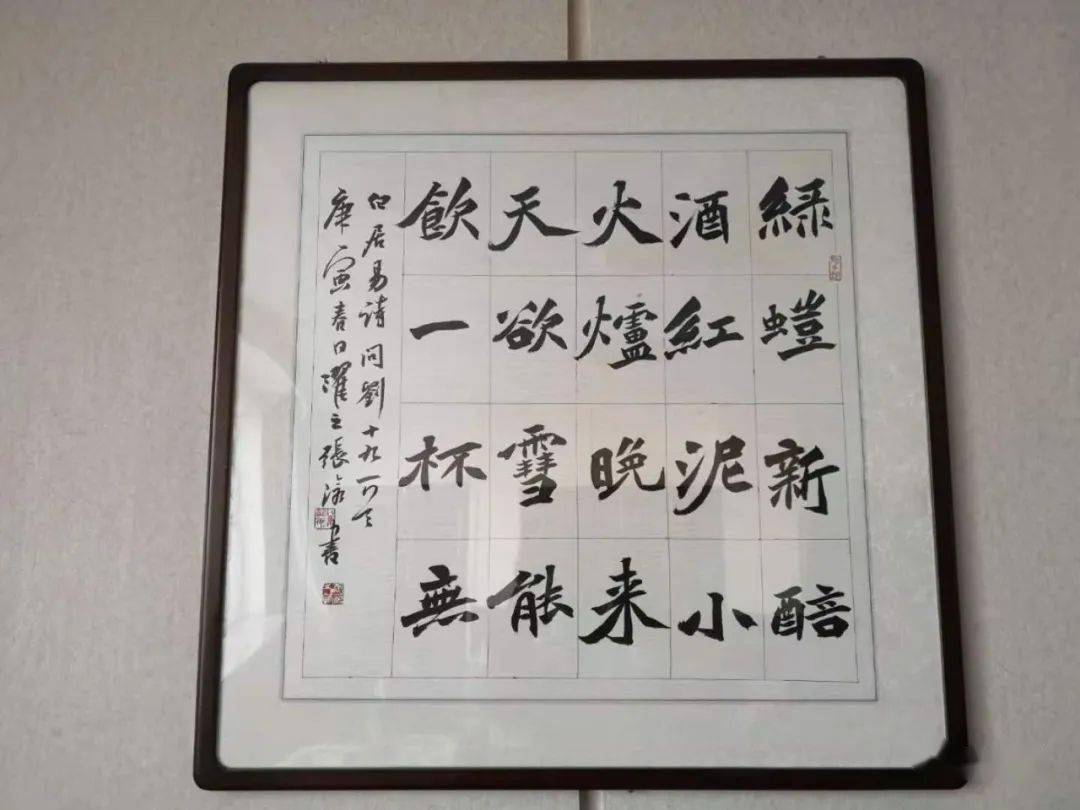 綠螘新醅
酒紅泥小
火爐晚来
天欲雪能
飲一杯無
白居易詩問劉十九一首
庚寅春日濯之張書